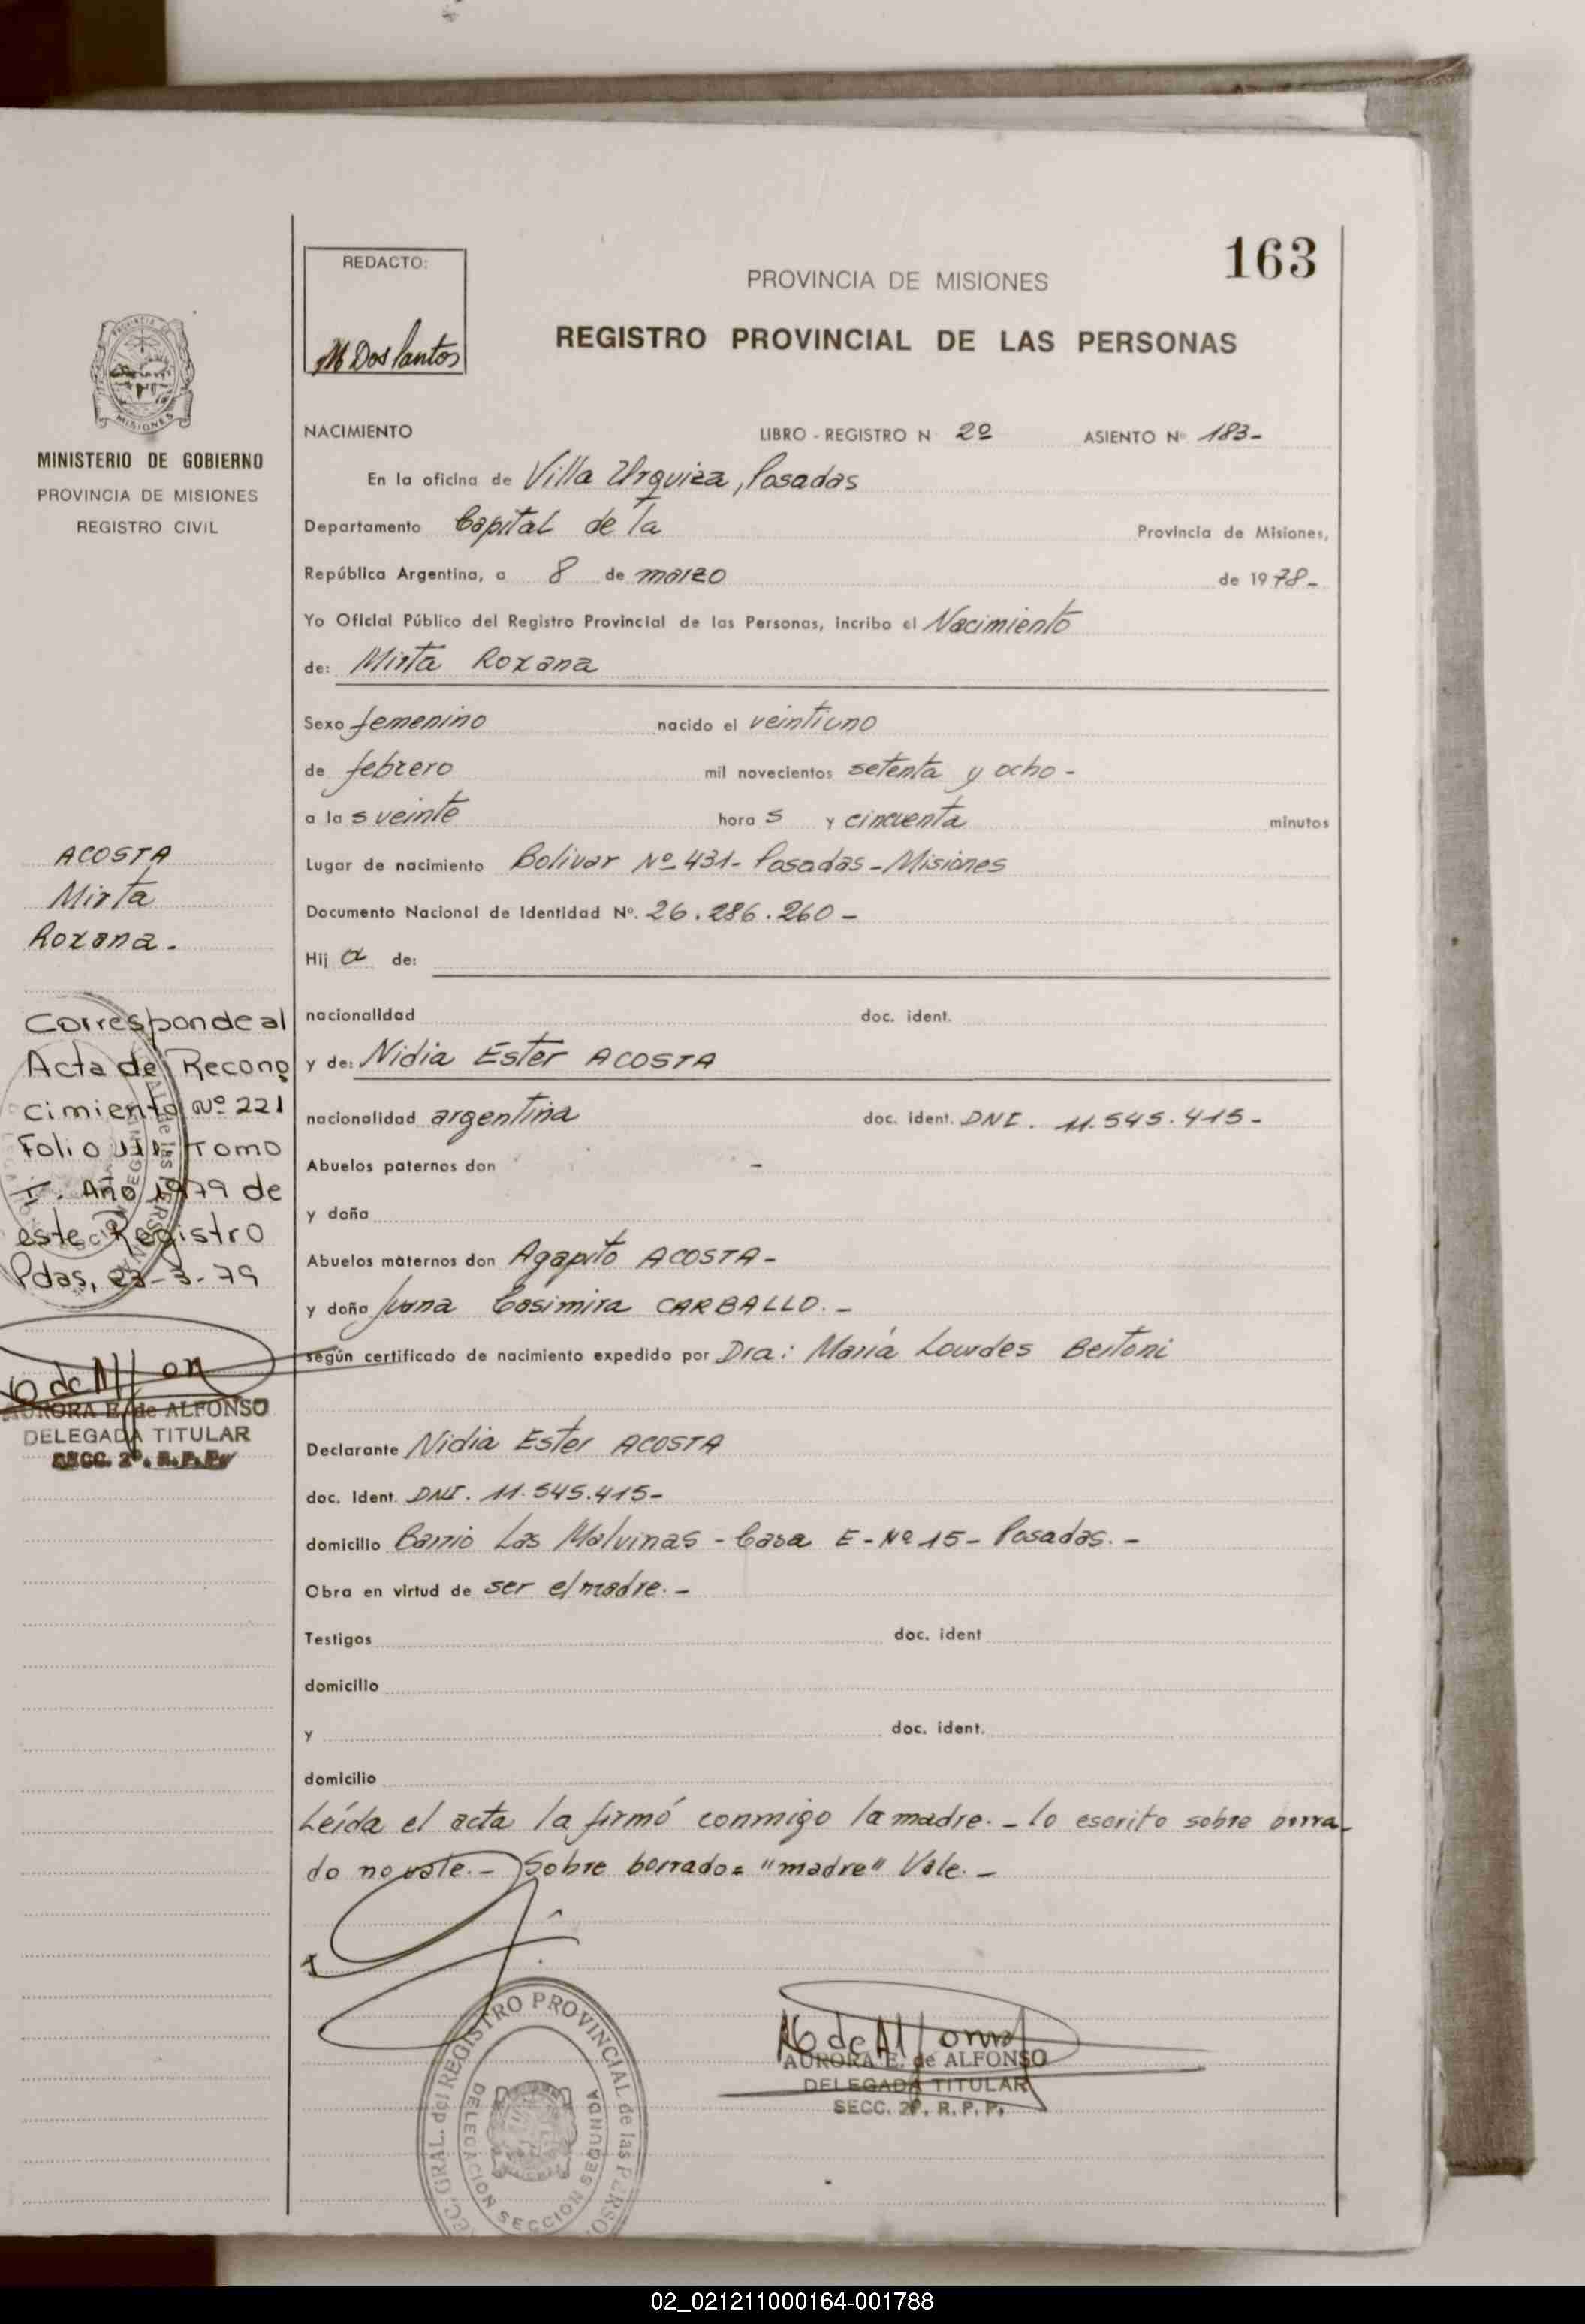 163
REDACTO:
M Dos Santos
PROVINCIA DE MISIONES
REGISTRO PROVINCIAL DE LAS PERSONAS
MISIONES
MINISTERIO DE GOBIERNO
PROVINCIA DE MISIONES
REGISTRO CIVIL
ACOSTA
Mirta
Roxana.-
Corresponde al
Acta de Recono
cimiento Nº 221
Folio 111 Tomo
I. Año 1979 de
este Registro
Pdas, 23-3-79
AURORA E. de ALFONSO
DELEGADA TITULAR
SECC. 2ª. R.P.P.
NACIMIENTO LIBRO - REGISTRO N 2º ASIENTO Nº 183-
En la oficina de Villa Urquiza, Posadas
Departamento Capital de la Provincia de Misiones,
República Argentina, a 8 de marzo de 1978-
Yo Oficial Público del Registro Provincial de las Personas, incribo el Nacimiento
de: Mirta Roxana
Sexo femenino nacido el veintiuno
de febrero mil novecientos setenta y ocho -
a las veinte horas y cincuenta minutos
Lugar de nacimiento Bolivar Nº 431- Posadas - Misiones
Documento Nacional de Identidad Nº. 26.286.260 -
Hija de:
nacionalidad doc. ident.
y de: Nidia Ester ACOSTA
nacionalidad argentina doc. ident. DNI. 11.545.415-
Abuelos paternos don -
y doña
Abuelos maternos don Agapito ACOSTA -
y doña Juana Casimira CARBALLO. -
según certificado de nacimiento expedido por Dra: María Lourdes Bertoni
Declarante Nidia Ester ACOSTA
doc. Ident. DNI. 11.545.415-
domicilio Barrio Las Malvinas - Casa E - Nº 15 - Posadas. -
Obra en virtud de ser el madre. -
Testigos doc. ident
domicilio
y doc. ident.
domicilio
Leída el acta la firmó conmigo la madre. - lo escrito sobre borra-
do no vale. - Sobre borrado = "madre" Vale. -
SEC. GRAL. del REGISTRO PROVINCIAL de las PERSO
DELEGACION SECCION SEGUNDA
AURORA E. de ALFONSO
DELEGADA TITULAR
SECC. 2ª. R. P. P.
02_021211000164-001788